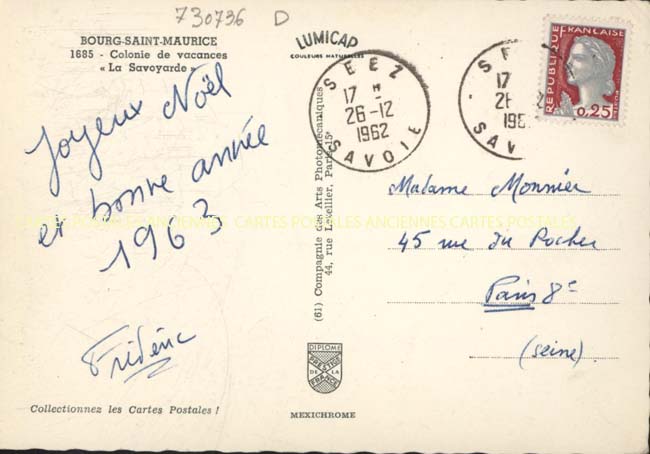 730736 D
BOURG-SAINT-MAURICE
1685 - Colonie de vacances
« La Savoyarde »
LUMICAP
COULEURS NATURELLES
Joyeux Noël
et bonne année
1963
Frédéric
Collectionnez les Cartes Postales !
(61) Compagnie des Arts Photomécaniques
44, rue Letellier, Paris-15e
DIPLOME
PRESTIGE
DE LA
FRANCE
MEXICHROME
SEEZ
17 H
26-12
1962
SAVOIE
SE
17
26
196
SAV
REPUBLIQUE FRANCAISE
0,25
Madame Monnier
45 rue du Rocher
Paris 8e
(Seine)
CARTES POSTALES ANCIENNES CARTES POSTALES